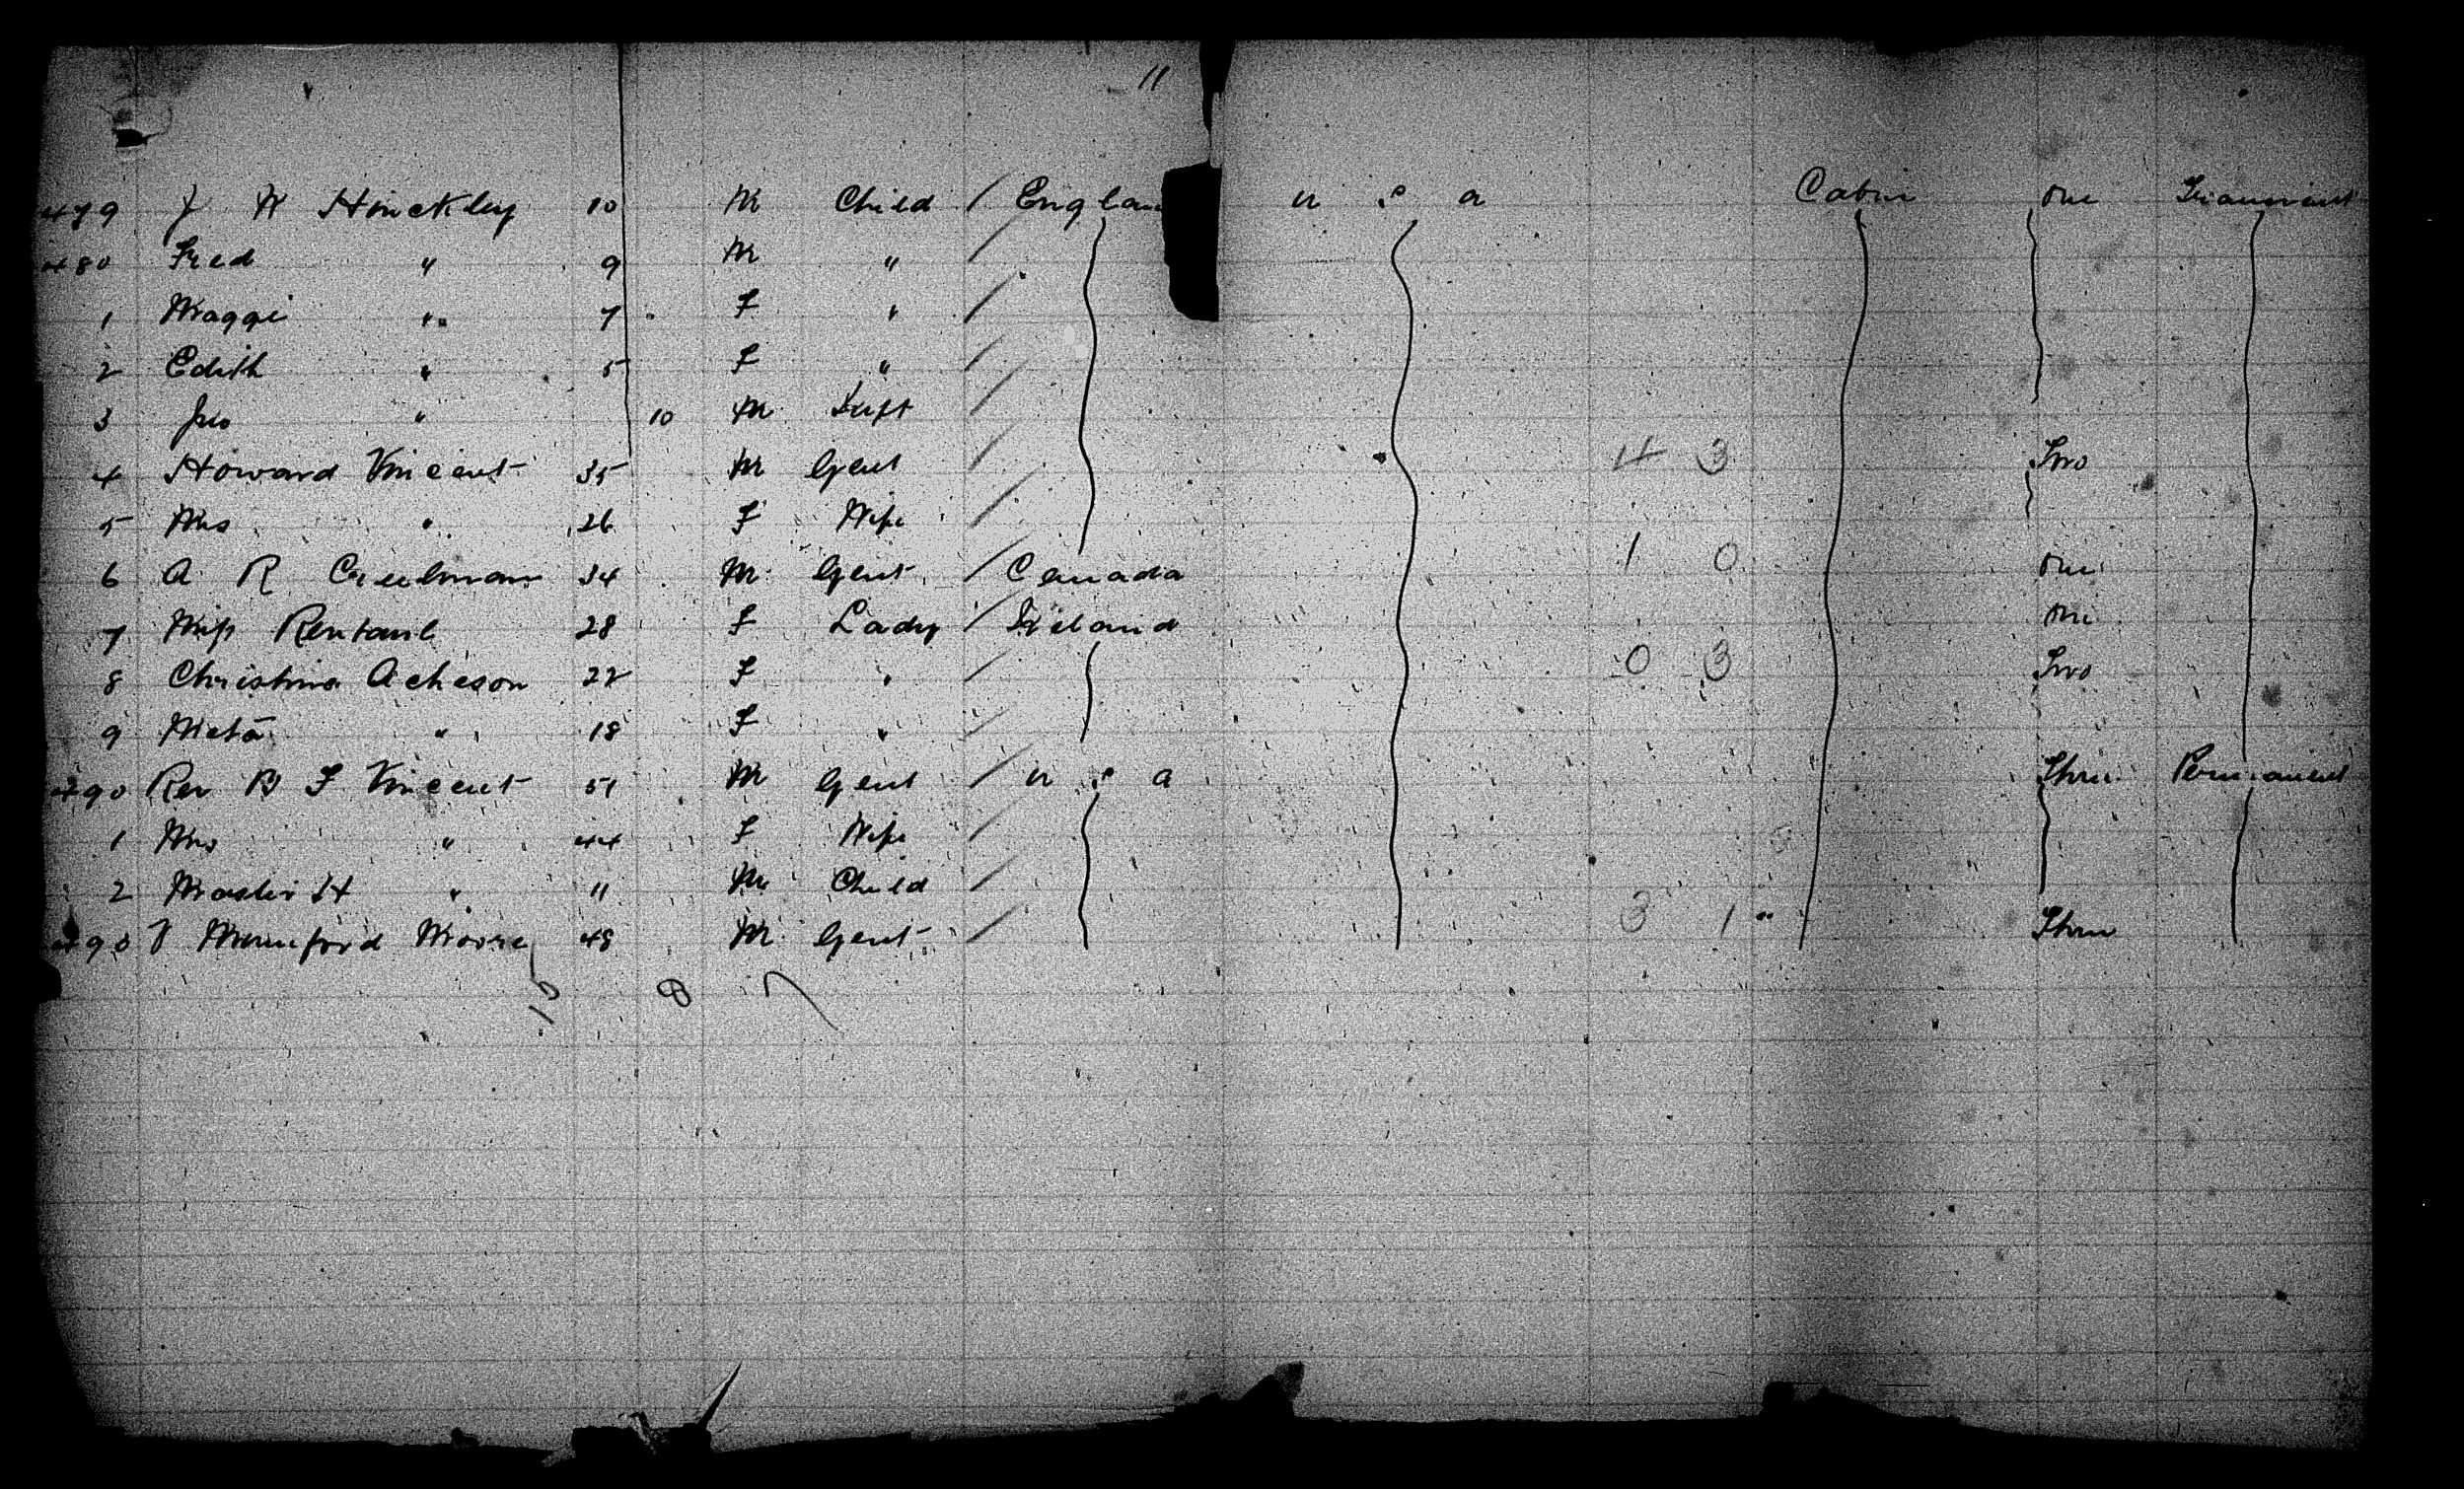 11
479 J W Hinckley 10 M Child / England U S A Cabin One Transient
480 Fred " 9 M " /
1 Maggi " 7 F " /
2 Edith " 5 F " /
3 Jno " 10 M Inft /
4 Howard Vincent 35 M Gent / 4 3 Two
5 Mrs " 26 F Wife /
6 A R Creelman 34 M Gent / Canada 1 0 One
7 Miss 28 F Lady / Ireland One
8 Christina Acheson 22 F " / 0 3 Two
9 Meta " 18 F " /
490 Rev B F Vincent 51 M Gent / U S A Three Permanent
1 Mrs " 44 F Wife /
2 Master H " 11 M Child /
493 Mumford Moore 48 M Gent / 3 1 " Three
15 8 7